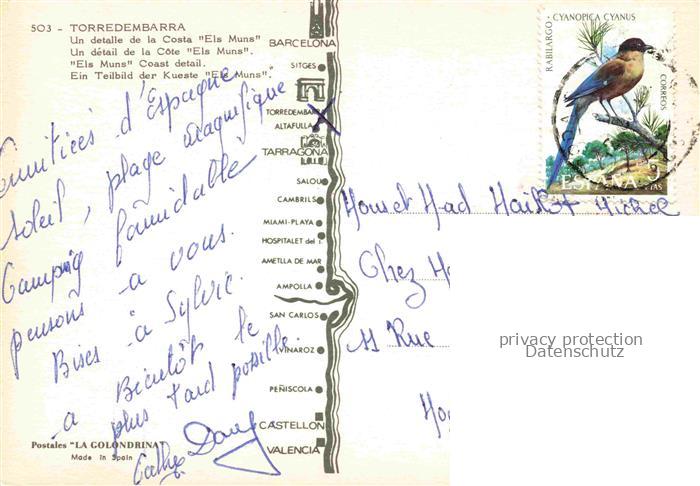 503 - TORREDEMBARRA
Un detalle de la Costa "Els Muns"
Un détail de la Côte "Els Muns".
"Els Muns" Coast detail.
Ein Teilbild der Kueste "Els Muns".
d'Espagne
soleil, plage magnifique
Camping formidable
pensons à vous.
Bises à Sylvie.
à Bientôt le
plus tard possible.
Cathy Dany
Postales "LA GOLONDRINA"
Made in Spain
BARCELONA
SITGES
TORREDEMBARRA
X
ALTAFULLA
TARRAGONA
SALOU
CAMBRILS
MIAMI-PLAYA
HOSPITALET del I.
AMETLLA DE MAR
AMPOLLA
SAN CARLOS
VINAROZ
PEÑISCOLA
CASTELLON
VALENCIA
RABILARGO - CYANOPICA CYANUS
CORREOS
ESPAÑA 3 PTAS
Michel
Chez
11 Rue
privacy protection
Datenschutz